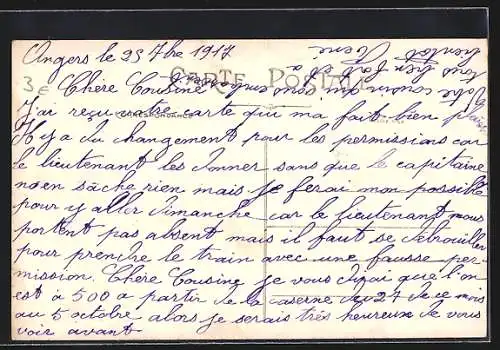 Angers le 25 7bre 1917
3 €
CARTE POSTALE
Chère Cousine
J'ai reçu votre carte qui ma fait bien plaisir
Il y a du changement pour les permissions car
le lieutenant les donner sans que le capitaine
no en sâche rien mais je ferai mon possible
pour y aller dimanche car le lieutenant nous
portent pas absent mais il faut se debrouiller
pour prendre le train avec une fausse per-
mission. Chère Cousine je vous dirai que l'on
est à 500 a partir de la caserne du 27 de ce mois
au 5 octobre alors je serais très heureux de vous
voir avant
Votre cousin qui vous embrasse
tous bien fort et a
bientot